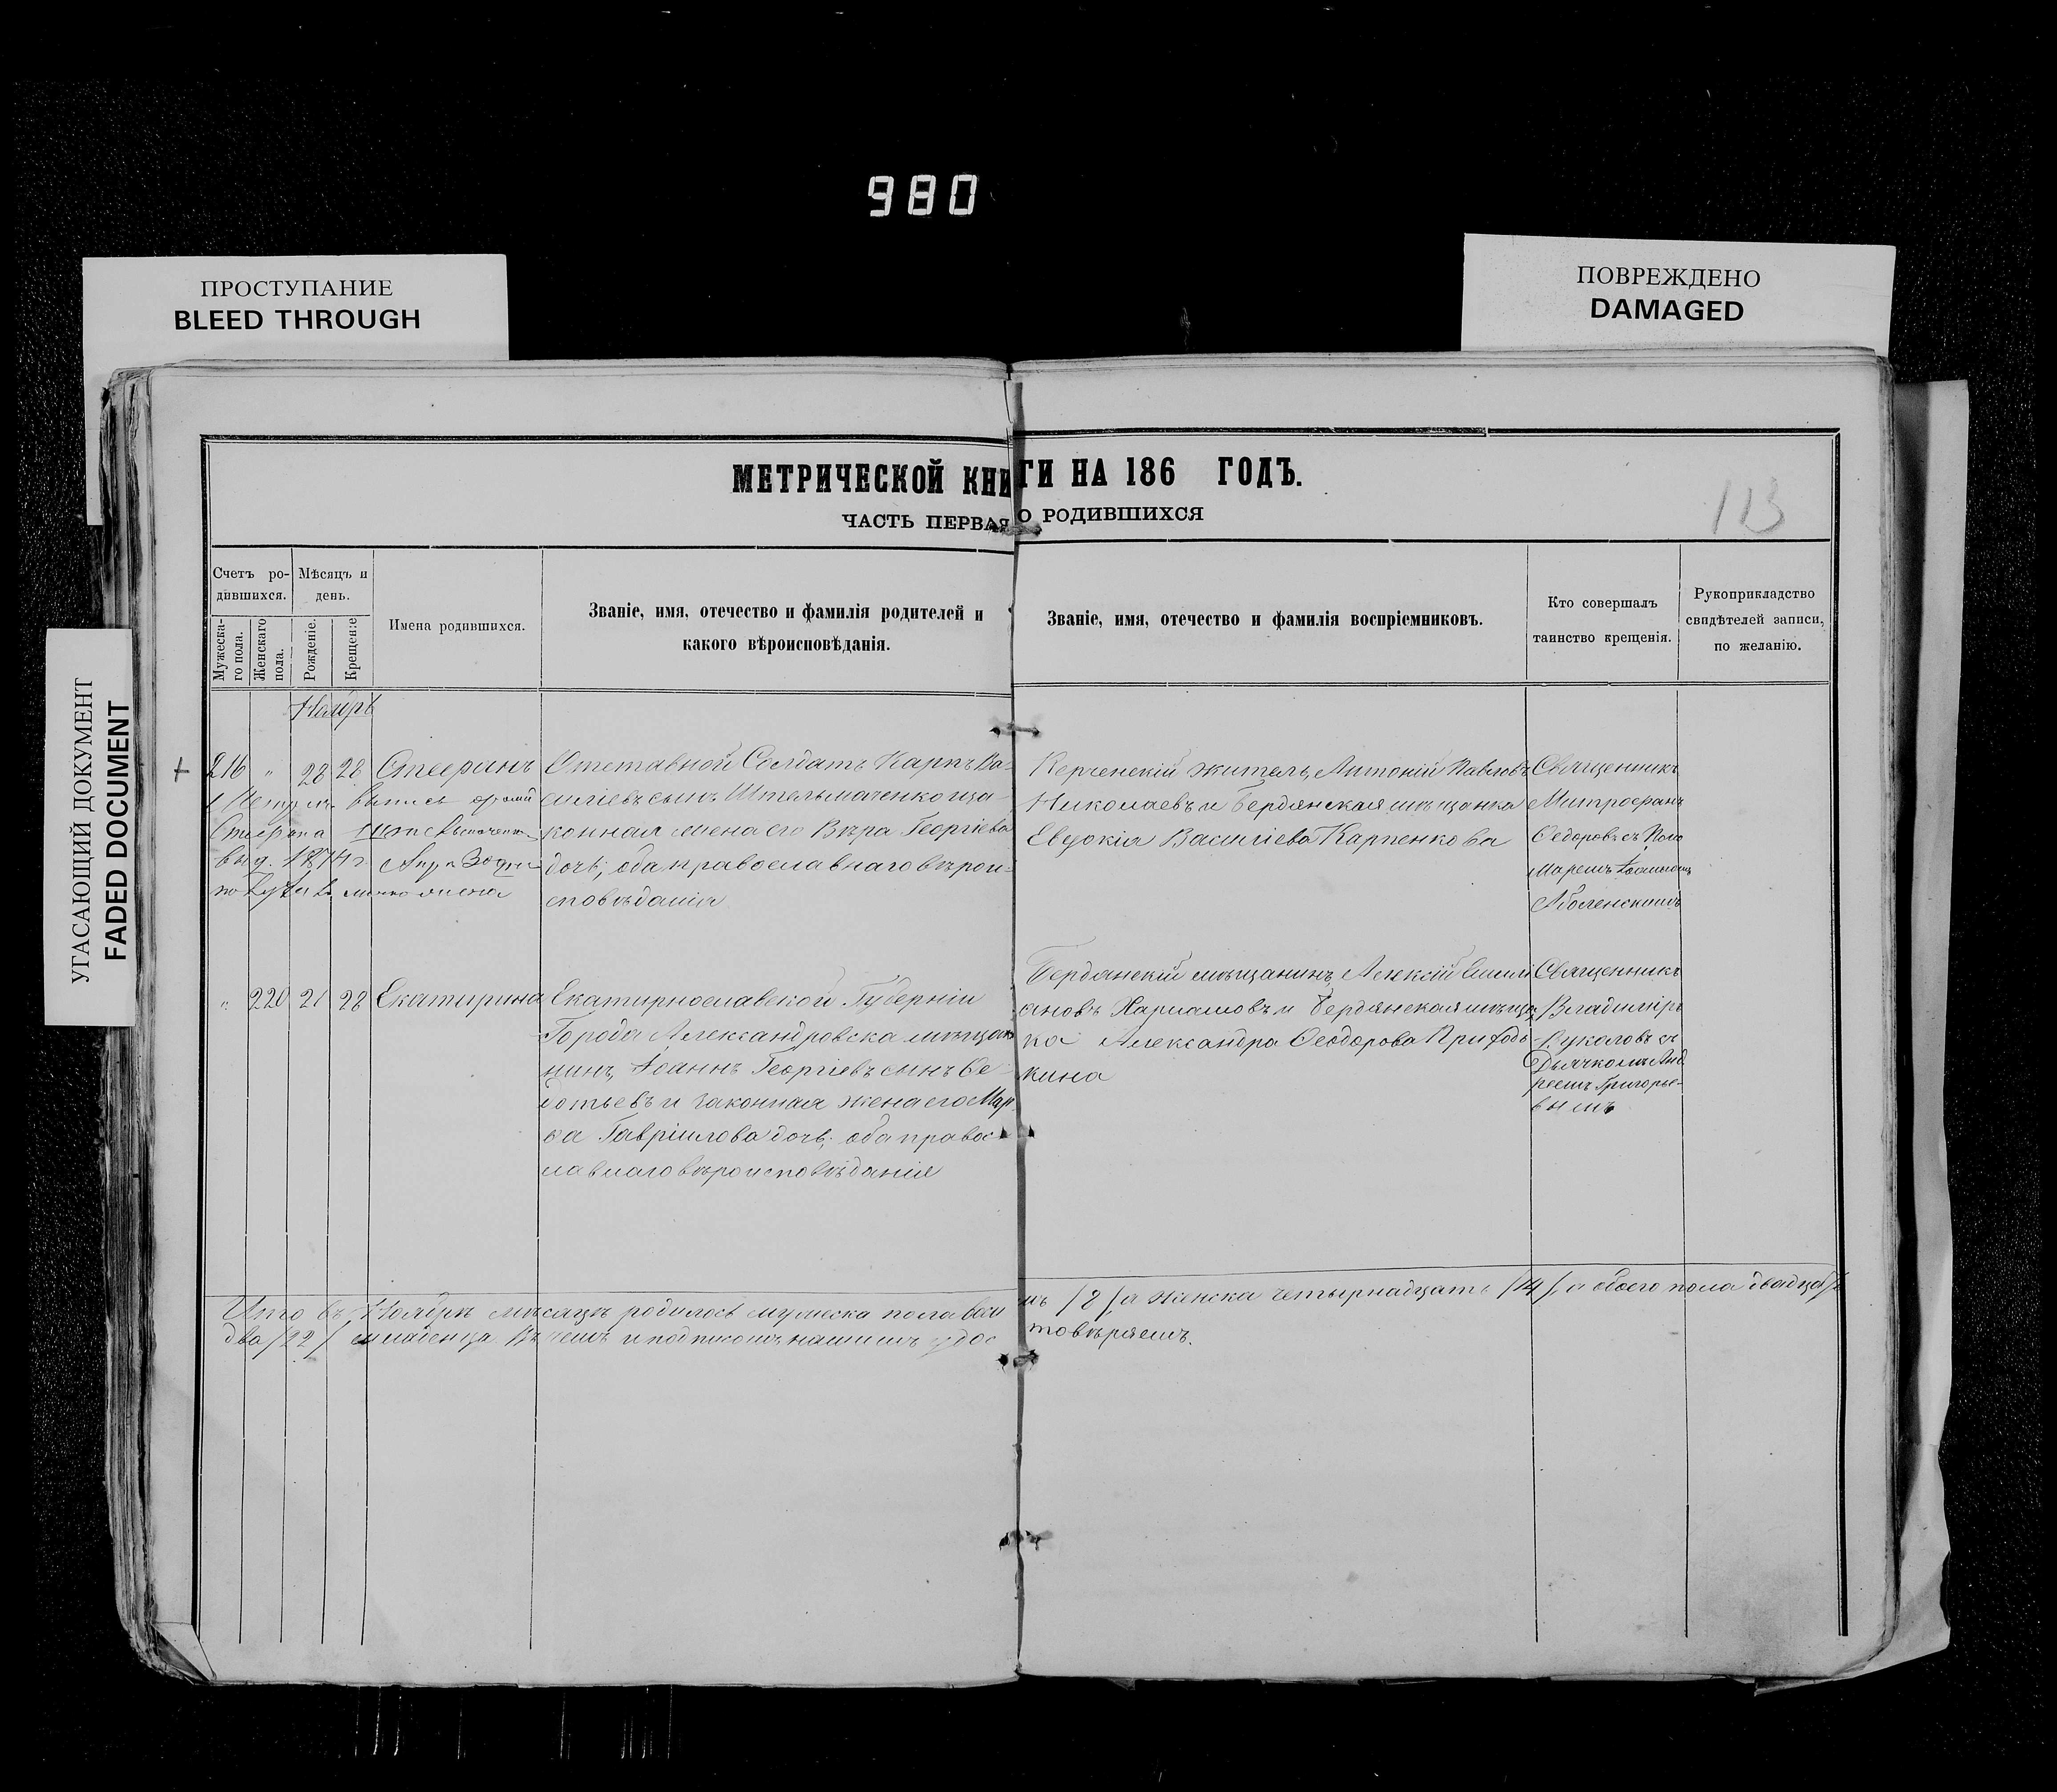 980
ПРОСТУПАНИЕ
BLEED THROUGH
ПОВРЕЖДЕНО
DAMAGED
УГАСАЮЩИЙ ДОКУМЕНТ
FADED DOCUMENT
МЕТРИЧЕСКОЙ КНИГИ НА 186 ГОДЪ.
ЧАСТЬ ПЕРВАЯ О РОДИВШИХСЯ
113
Счетъ ро-
дившихся.
Мѣсяцъ и
день.
Мужеска-
го пола.
Женскаго
пола.
Рожденіе.
Крещеніе
Имена родившихся.
Званіе, имя, отечество и фамилія родителей и
какого вѣроисповѣданія.
Званіе, имя, отечество и фамилія воспріемниковъ.
Кто совершалъ
таинство крещенія.
Рукоприкладство
свидѣтелей записи,
по желанію.
Ноябрь
216 " 28 28 Стефанъ
Отставной Солдатъ Карпъ Ва-
силіевъ сынъ Штельмаченко и за
конная жена его Вѣра Георгіева
дочь; оба православнаго вѣрои-
споведанія
Метрич. выпись
Стефана
выд. 1874 г.
Керченскій житель Антоній Павловъ
Николаевъ и Бердянская мѣщанка
Евдокія Василіева Карпенкова
Священникъ
Митрофанъ
Федоровъ съ Поно
маремъ
Аболенскимъ
" 220 21 28 Екатирина
Екатиринославской Губерніи
Города Александровска мѣща
нинъ, Іоаннъ Георгіевъ сынъ Фе
дотьевъ и законная жена его Мар
фа Гавріилова дочь; оба право
славнаго вѣроисповѣданія
Бердянскій мѣщанинъ Алексій Емилі
ановъ и Бердянская мѣщан
ка Александра Феодорова Приходь
кина
Священникъ
Владиміръ
Луколовъ съ
Дьячкомъ Анд
реемъ Григорье-
вымъ
Итого въ Ноябрѣ мѣсяцѣ родилось мужеска пола восемь /8/ а женска четырнадцать /14/, а обоего пола двадцать
два /22/ младенца. Въ чемъ и подписомъ нашимъ удостовѣряемъ.